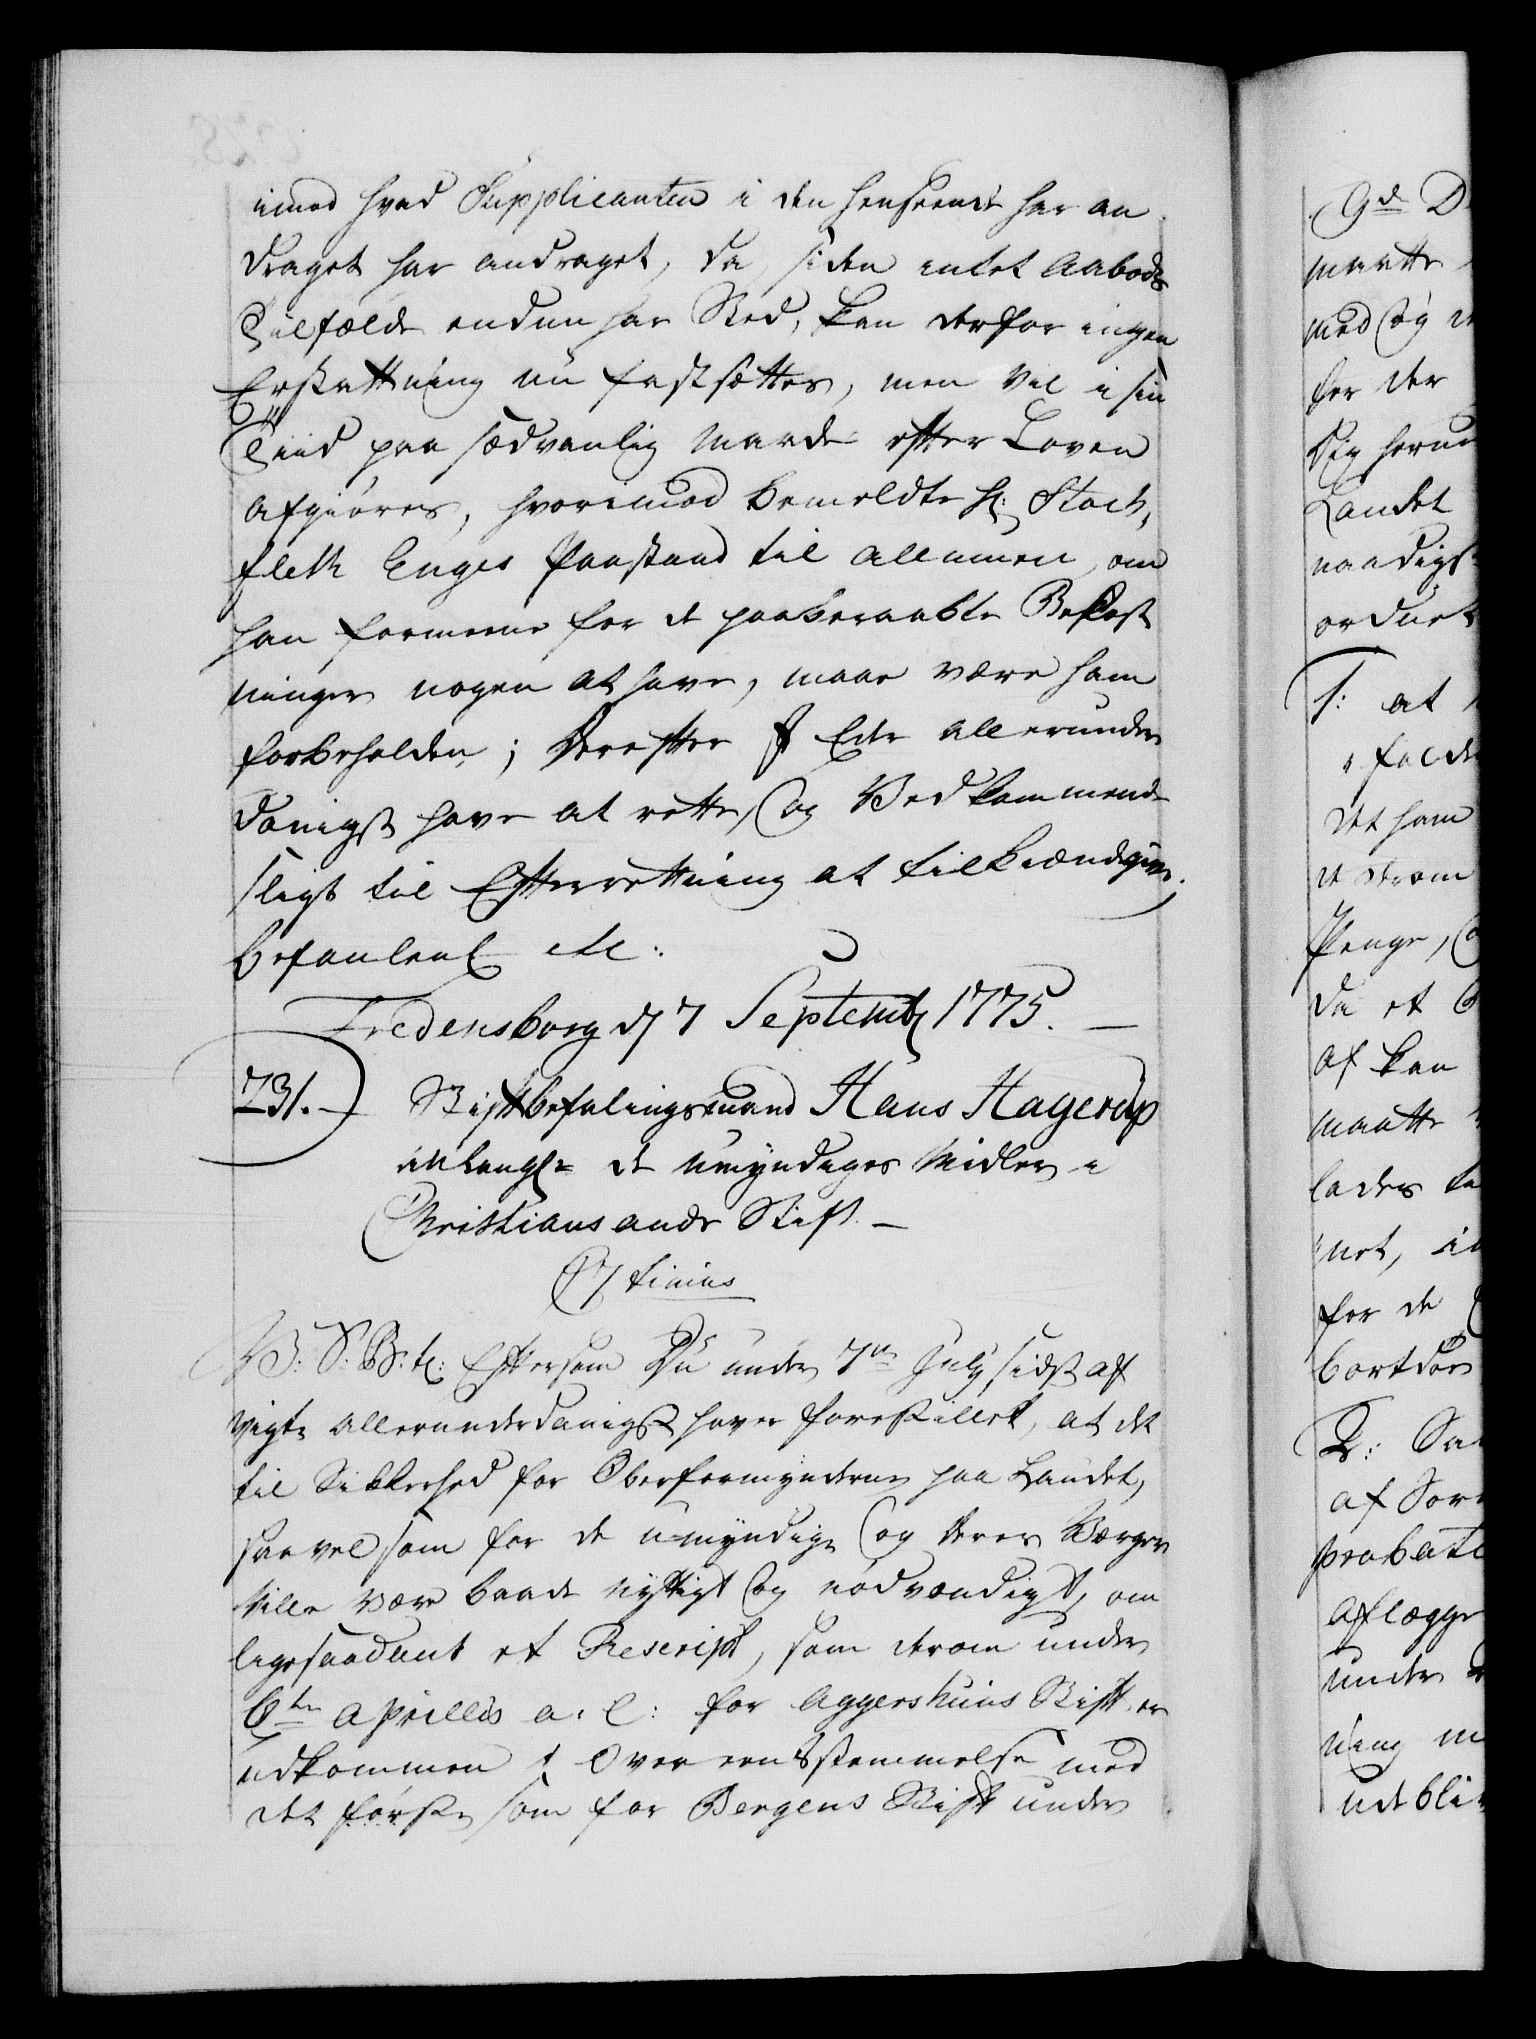 imod hvad Supplicanten i den henseende har an
draget har andraget, da, siden intet Aabods
Tilfælde endnu har Sted, kan derfor ingen
Erstattning nu fastsættes, men vil i sin
Tiid paa sædvanlig Maade efter Loven
afgiøres, hvorimod bemeldte Hr: Stoch,
fleth Enges Paastand til Allmuen, om
han formeene for de paaberaabte Bekost
ninger nogen at have, maae være ham
forbeholden; Derefter I Eder allerunder
danigst have at rette, og Vedkommende
sligt til Efterrettning at tilkiendegive.
Befalendes etc:
Fredensborg d 7 Septembr 1775. —
731.) Stiftbefalingsmand Hans Hagerup
anlangde de umyndiges Midler i
Christiansands Stift. —
C7 tinius
V: S: G: B: t: Eftersom Du under 7de July sidst af
vigte allerunderdanigst haver forestillet, at det
til Sikkerhed for Oberformynderne paa Landet,
saavel som for de umyndige og deres Værger
ville være baade nyttigt og nødvendigt, om
ligesaadant et Rescript, som derom under
6te Aprillis a. c: for Aggershuus Stift er
udkommen i Overeensstemmelse med
det første som for Bergens Stift under
Gd D
maatte
med og
for der
Sig herun
Landet
naadigst
ordnet
1: at
det ham
Penge,
da et
af kan
maatte
lades
for de
bortdøe
2: Sa
af Sor
probate
aflægge
under
ning m
udebli